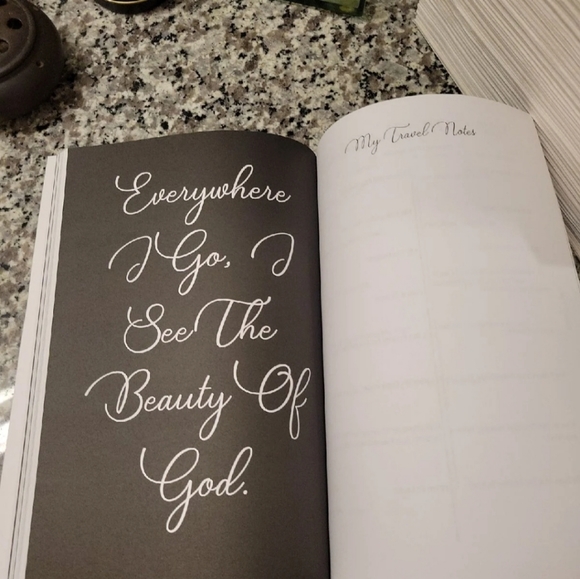 Everywhere
I Go, I
See The
Beauty Of
God.
My Travel Notes